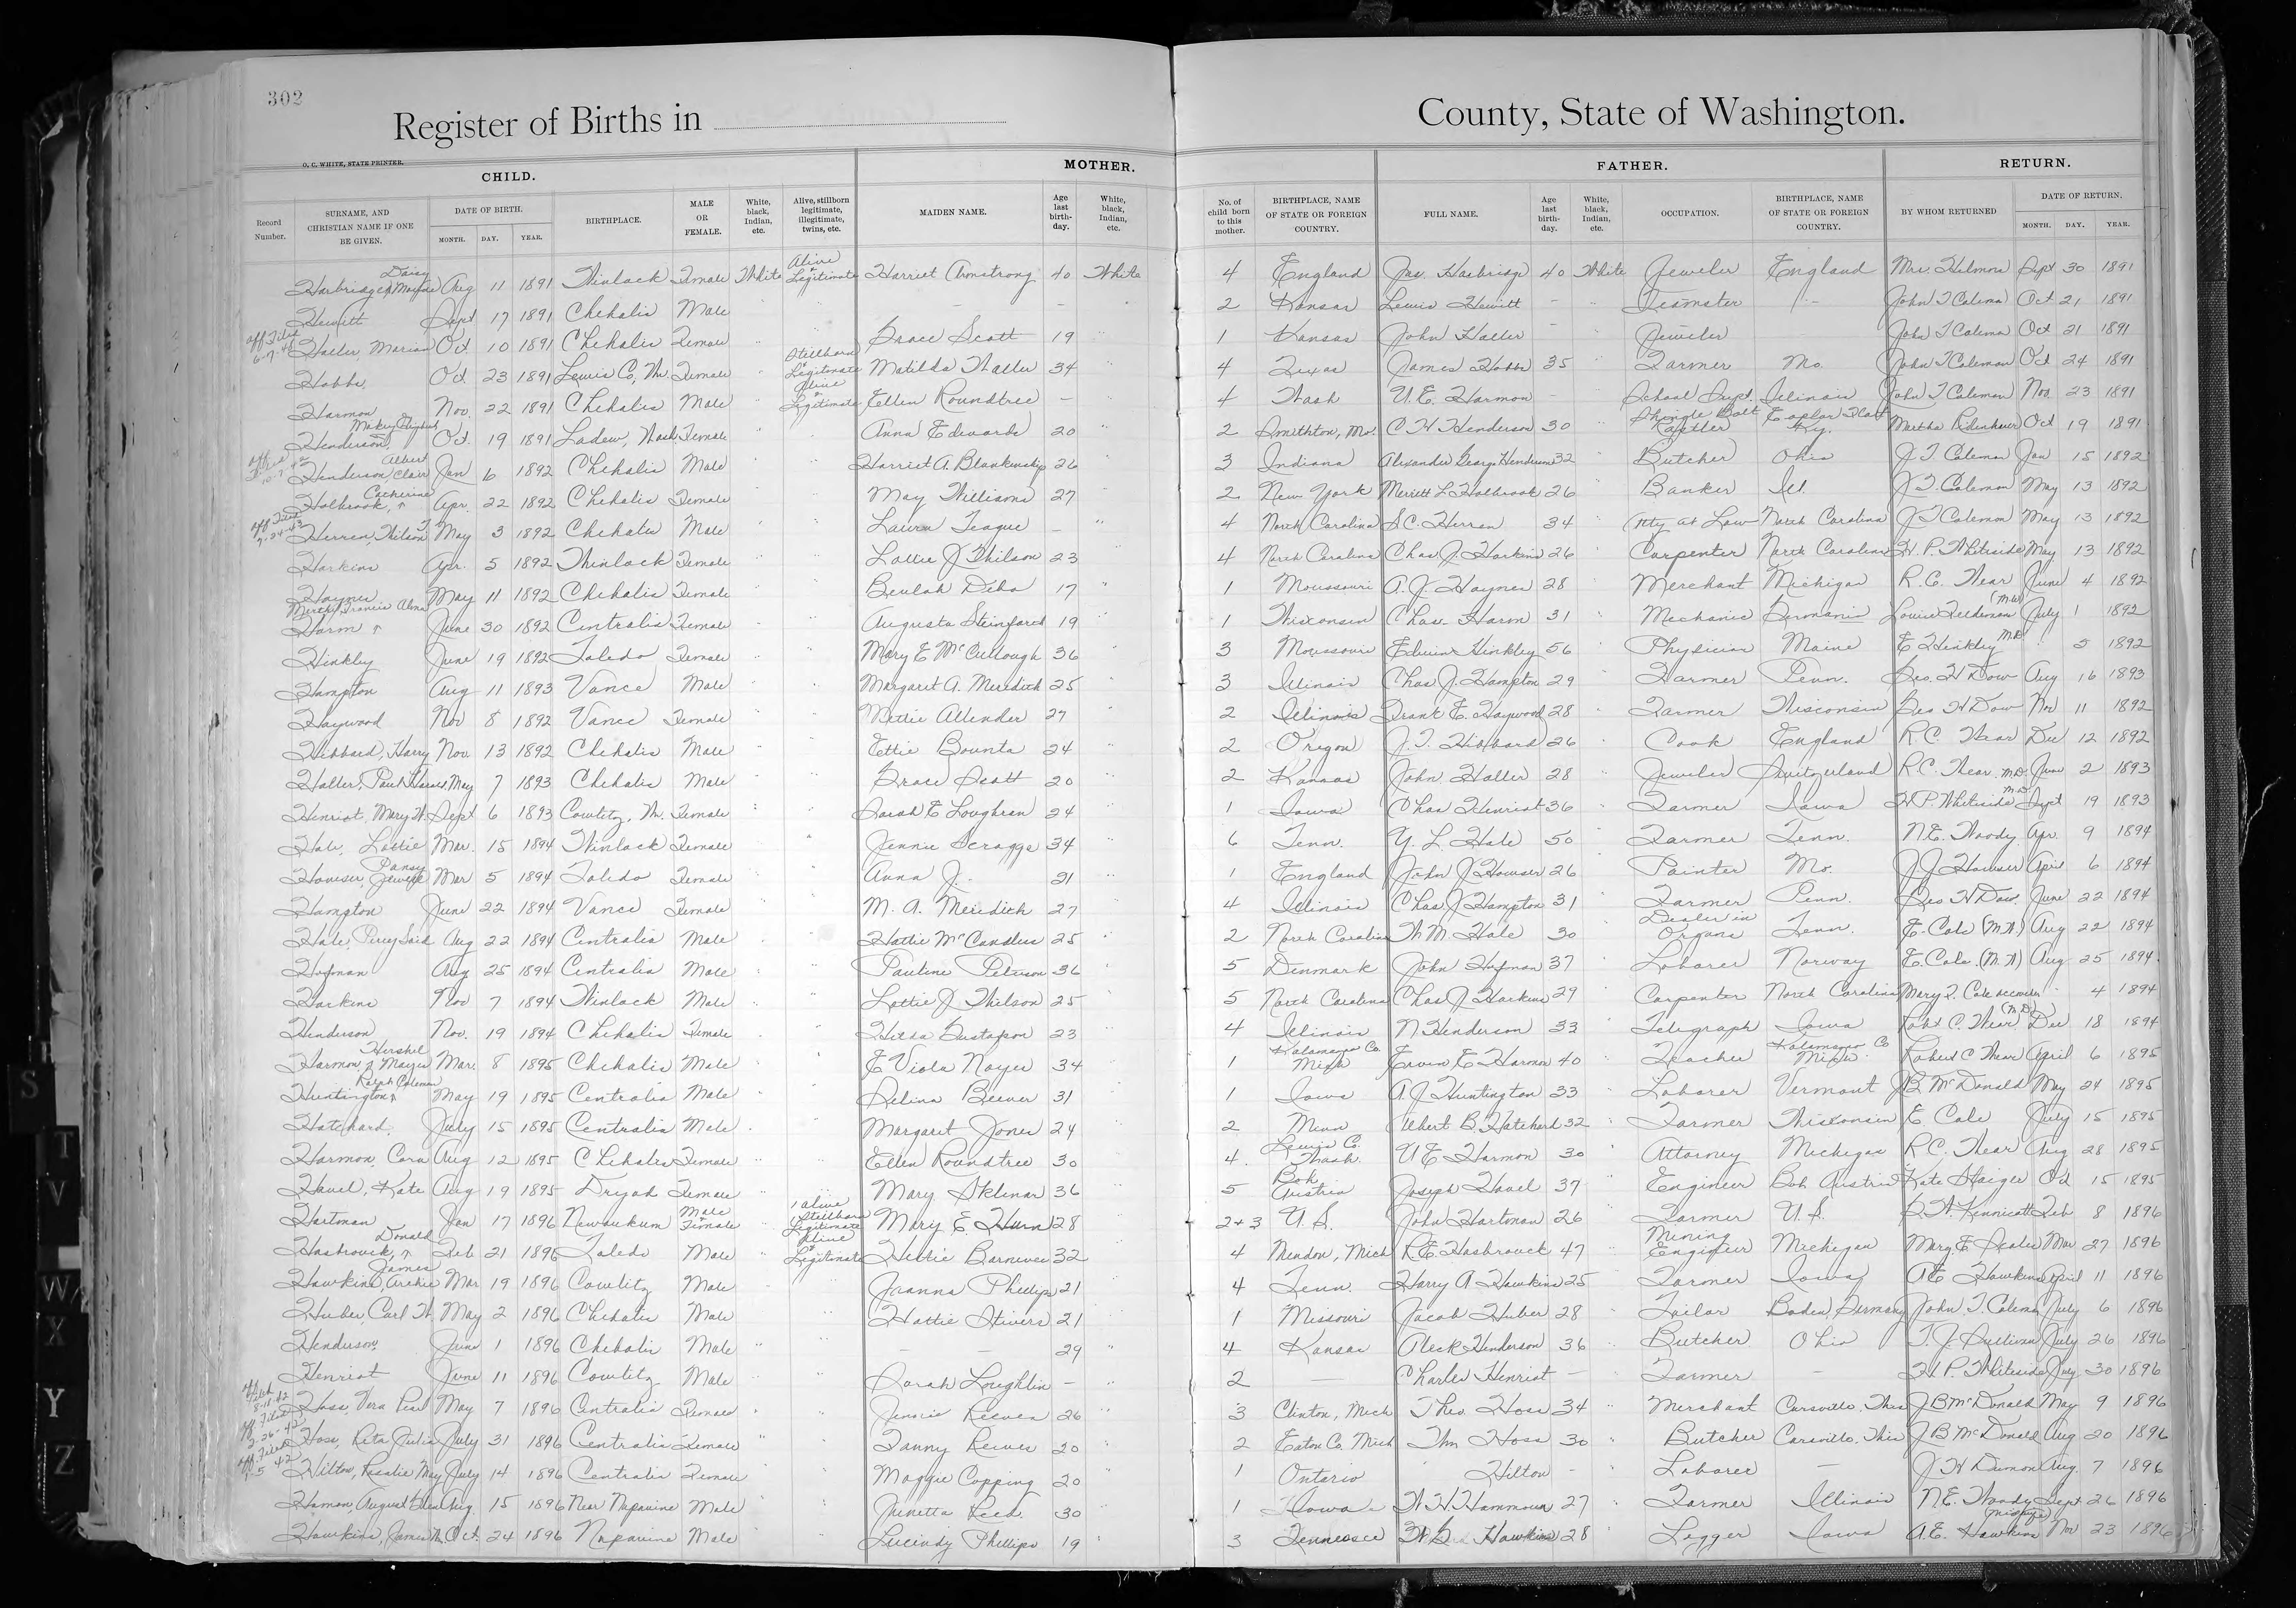 302
Register of Births in
County, State of Washington.
O. C. WHITE, STATE PRINTER.
CHILD. MOTHER. FATHER. RETURN.
Record Number. SURNAME, AND CHRISTIAN NAME IF ONE BE GIVEN. DATE OF BIRTH. MONTH. DAY. YEAR. BIRTHPLACE. MALE OR FEMALE. White, black, Indian, etc. Alive, stillborn legitimate, illegitimate, twins, etc. MAIDEN NAME. Age last birth-day. White, black, Indian, etc. No. of child born to this mother. BIRTHPLACE, NAME OF STATE OR FOREIGN COUNTRY. FULL NAME. Age last birth-day. White, black, Indian, etc. OCCUPATION. BIRTHPLACE, NAME OF STATE OR FOREIGN COUNTRY. BY WHOM RETURNED DATE OF RETURN. MONTH. DAY. YEAR.
Harbridge, Daisy Aug 11 1891 Winlock Female White Alive & Legitimate Harriet Armstrong 40 White 4 England Jas. Harbridge 40 White Jeweler England Mrs. Hilmore Sept 30 1891
Hewitt Sept 17 1891 Chehalis Male " " — — " 2 Kansas Lewis Hewitt — " Teamster — John T Coleman Oct 21 1891
Haller, Marian Oct. 10 1891 Chehalis Female " " Grace Scott 19 " 1 Kansas John Haller — " Jeweler John T Coleman Oct 21 1891
Hobbs Oct. 23 1891 Lewis Co, Wn. Female " Stillborn & Legitimate Matilda Waller 34 " 4 Texas James Hobbs 35 " Farmer Mo. John T Coleman Oct 24 1891
Harmon Nov. 22 1891 Chehalis Male " Alive & Legitimate Ellen Roundtree — " 4 Wash U. E. Harmon — School Supt. Illinois John T Coleman Nov. 23 1891
Henderson, Oct. 19 1891 Ladew, Wash Female " Anna Edwards 20 " 2 Smithton, Mo. C H Henderson 30 Shingle Bolt Ky. Martha Ridenhauer Oct 19 1891
Henderson, Albert Clair Jan 6 1892 Chehalis Male " " Harriet A. Blankenship 26 " 3 Indiana Alexander George Henderson 32 " Butcher Ohio J T. Coleman Jan 15 1892
Holbrook, Catherine Apr. 22 1892 Chehalis Female " " May Williams 27 " 2 New York Merritt L Holbrook 26 Banker Ill. J T. Coleman May 13 1892
Herren, Wilson T. May 3 1892 Chehalis Male " " Laura Teague — " 4 North Carolina S. C. Herren 34 " Atty at Law North Carolina J T Coleman May 13 1892
Harkins Apr. 5 1892 Winlock Female " " Lottie J Wilson 23 4 North Carolina Chas. J. Harkins 26 " Carpenter North Carolina H. P. Whiteside May 13 1892
Haynes May 11 1892 Chehalis Female " " Beulah 17 " 1 Moussouri A. J. Haynes 28 " Merchant Michigan R. C. Wear June 4 1892
Harm Mertha Francis Alma June 30 1892 Centralia Female " " Augusta Steinford 19 " 1 Wisconsin Chas. Harm 31 " Mechanic Germania Louise (M.W) July 1 1892
Hinkley June 19 1892 Toledo Female " " Mary E McCullough 36 " 3 Moussouri Edwin Hinkley 56 " Physician Maine E Hinkley M.D. " 5 1892
Hampton Aug 11 1893 Vance Male " " Margaret A. Meredith 25 " 3 Illinois Chas J. Hampton 29 " Farmer Penn. Geo. H Dow Aug 16 1893
Haywood Nov 8 1892 Vance Female " " Mettie Allender 27 " 2 Illinois Frank E. Haywood 28 " Farmer Wisconsin Geo H Dow Nov 11 1892
Hibbard, Harry Nov. 13 1892 Chehalis Male " " Ettie Bounts 24 " 2 Oregon J. T. Hibbard 26 " Cook England R. C. Wear Dec 12 1892
Haller, Paul May 7 1893 Chehalis Male " " Grace Scott 20 " 2 Kansas John Haller 28 " Jeweler Switzerland R. C. Wear M.D. June 2 1893
Henriot, Mary H. Sept 6 1893 Cowlitz, Wn. Female " " Sarah E Loughran 24 " 1 Iowa Chas Henriot 36 " Farmer Iowa H P. Whiteside M.D. Sept 19 1893
Hale, Lottie Mar. 15 1894 Winlock Female " Jennie Scraggs 34 " 6 Tenn. Y. L. Hale 50 " Farmer Tenn. N. E. Woody Apr. 9 1894
Howser, Pansy Jewell Mar 5 1894 Toledo Female " Anna J. 21 " 1 England John J Howser 26 " Painter Mo. J. J. Howser April 6 1894
Hampton June 22 1894 Vance Female " M. A. Meredith 27 " 4 Illinois Chas. J Hampton 31 " Farmer Penn. Geo H Dow June 22 1894
Hale, Percy Said Aug 22 1894 Centralia Male " " Hattie McCandless 25 " 2 North Carolina W. M. Hale 30 " Dealer in Organs Tenn. E. Cole (M.W.) Aug 22 1894
Hofman Aug 25 1894 Centralia Male " " Pauline Peterson 36 " 5 Denmark John Hofman 37 " Laborer Norway E. Cole. (M. W) Aug 25 1894
Harkins Nov 7 1894 Winlock Male " " Lottie J Wilson 25 " 5 North Carolina Chas J Harkins 29 " Carpenter North Carolina Mary F. Cole December 4 1894
Henderson Nov. 19 1894 Chehalis Female " Hilda Gustafson 23 " 4 Illinois N. Henderson 33 " Telegraph Iowa Robt C. Wear (M.D.) Dec 18 1894
Harmon, Hershel Mayer Mar. 8 1895 Chehalis Male " " E Viola Noyes 34 " 1 Kalamazoo Co. Mich Ervin E Harmon 40 " Teacher Kalamazoo Co Mich Robert C Wear April 6 1895
Huntington, Ralph Coleman May 19 1895 Centralia Male " " Delina Beever 31 " 1 Iowa A. J Huntington 33 " Laborer Vermont J. B. McDonald May 24 1895
Hatchard July 15 1895 Centralia Male " Margaret Jones 24 " 2 Minn Albert B. Hatchard 32 " Farmer Wisconsin E Cole July 15 1895
Harmon, Cora Aug 12 1895 Chehalis Female " " Ellen Roundtree 30 " 4 Lewis Co. Wash. U E Harmon 30 " Attorney Michigan R C. Wear Aug 28 1895
Havel, Kate Aug 19 1895 Dryad Female " " Mary Sklenar 36 " 5 Boh Austria Joseph Havel 37 " Engineer Boh Austria Kate Staeger Oct 15 1895
Hartman Jan 17 1896 Newaukum Male & Female " 1 alive 1 Stillborn Legitimate Mary E. Hurn 28 " 2+3 U. S. John Hartman 26 " Farmer U. S. Kennicott Feb 8 1896
Hasbrouck, Donald Feb 21 1896 Toledo Male " Alive & Legitimate Barnever 32 " 4 Mendon, Mich R. E. Hasbrouck 47 " Mining Engineer Michigan Mary E Scales Mar 27 1896
Hawkins, James Archie Mar 19 1896 Cowlitz Male " Joanna Phillips 21 4 Tenn. Harry A Hawkins 25 " Farmer Iowa A E Hawkins April 11 1896
Huber, Carl H. May 2 1896 Chehalis Male " " Hattie Stivers 21 1 Missouri Jacob Huber 28 " Tailor Baden, Germany John T. Coleman July 6 1896
Henderson June 1 1896 Chehalis Male " " — — 29 " 4 Kansas Aleck Henderson 36 " Butcher Ohio T. J. Sullivan July 26 1896
Henriot June 11 1896 Cowlitz Male " Sarah Loughlin — " 2 — Charles Henriot — " Farmer — H. P. Whiteside July 30 1896
Hoss, Vera May 7 1896 Centralia Female " " Jennie Reeves 26 " 3 Clinton, Mich Theo. Hoss 34 " Merchant J B McDonald May 9 1896
Hoss, Reta Julia July 31 1896 Centralia Female " " Fanny Reeves 20 " 2 Eaton Co. Mich Wm Hoss 30 " Butcher J B McDonald Aug 20 1896
Hilton, Rosalie May July 14 1896 Centralia Female " Maggie Copping 20 " 1 Ontario Hilton — " Laborer — J H Dumon Aug. 7 1896
Hamon, August Aug. 15 1896 Near Napavine Male " " Junetta Reed. 30 1 Iowa W. H. Hammoun 27 " Farmer Illinois N. E. Woody Sept 26 1896
Hawkins, James M. Oct. 24 1896 Napavine Male Lucindy Phillips 19 " 3 Tennessee Hawkins 28 " Logger Iowa A. E. Hawkins (Midwife) Nov 23 1896
S
T
V
W
X
Y
Z